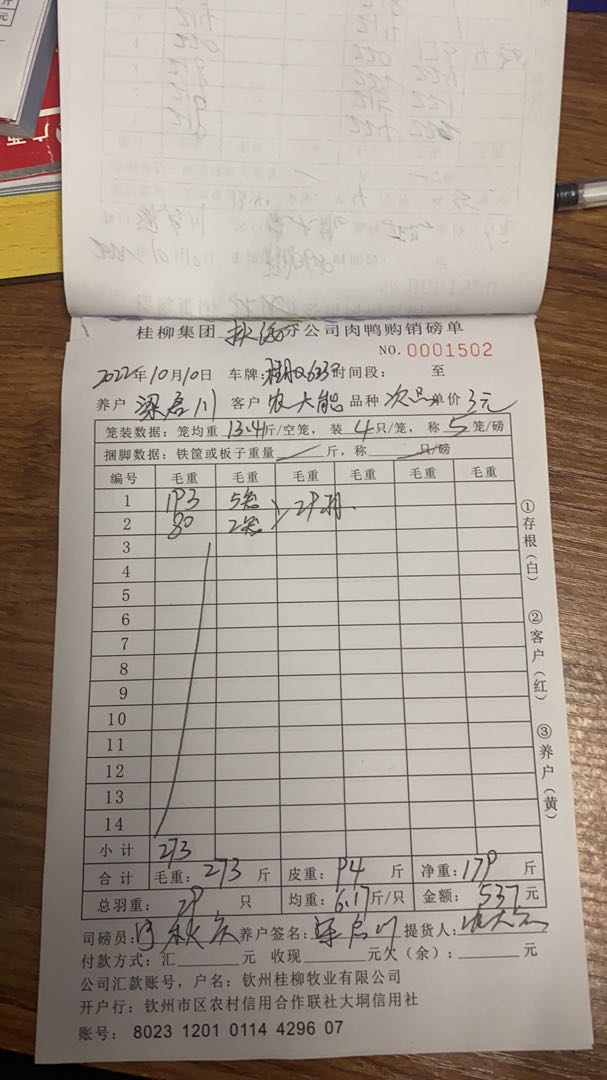 桂柳集团 分公司肉鸭购销磅单
NO. 0001502
2022年10月10日 车牌: 时间段: 至
养户 梁启川 客户 农大能 品种 次品 单价 3元
笼装数据: 笼均重 13.4斤/空笼, 装 4只/笼, 称 5笼/磅
捆脚数据: 铁筐或板子重量 斤, 称 只/磅
编号 毛重 毛重 毛重 毛重 毛重 毛重
1 193 5笼 29羽
2 80 2笼
3
4
5
6
7
8
9
10
11
12
13
14
小计 273
合计 毛重: 273 斤 皮重: 94 斤 净重: 179 斤
总羽重: 29 只 均重: 6.17斤/只 金额: 537元
司磅员: 养户签名: 梁启川 提货人:
付款方式: 汇 元 收现 元欠(余): 元
公司汇款账号, 户名: 钦州桂柳牧业有限公司
开户行: 钦州市区农村信用合作联社大垌信用社
账号: 8023 1201 0114 4296 07
①存根(白)
②客户(红)
③养户(黄)